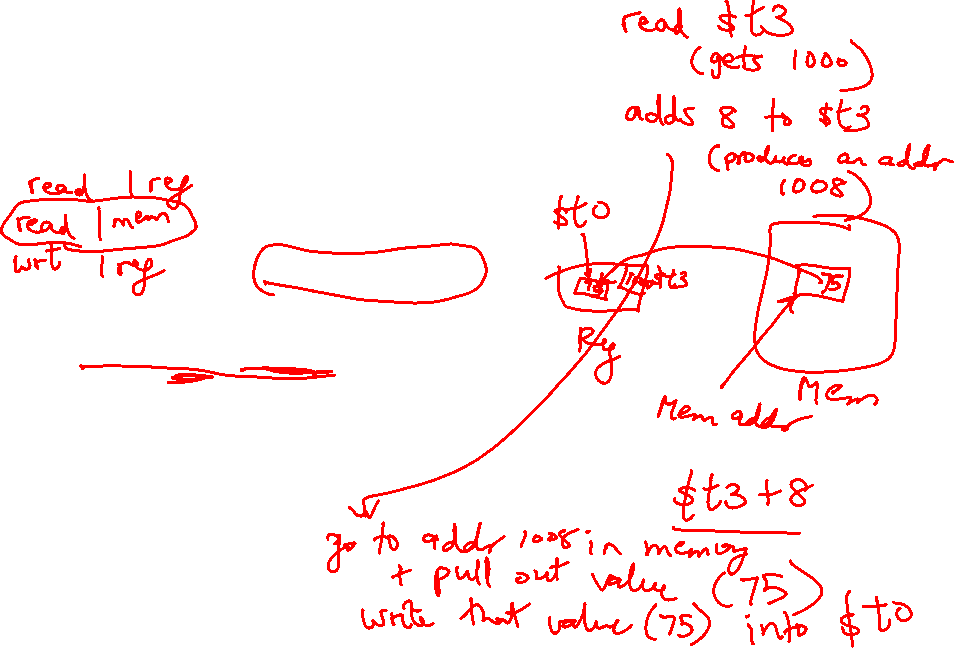 read $t3
(gets 1000)
adds 8 to $t3
(produces an addr
1008)
read | reg
read | mem
wrt | reg
$t0
$t3
75
Reg
Mem
Mem addr
$t3+8
go to addr 1008 in memory
+ pull out value (75)
write that value (75) into $t0